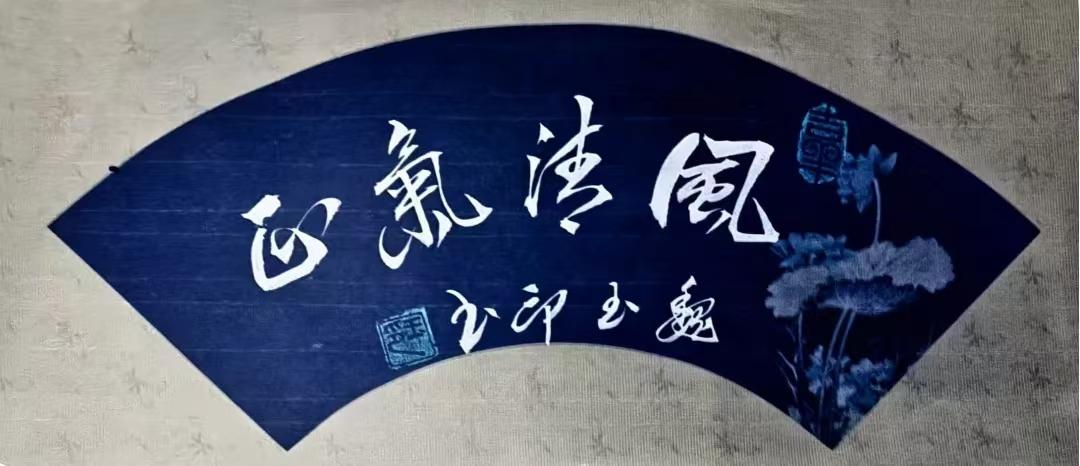 風清氣正
魏玉印书